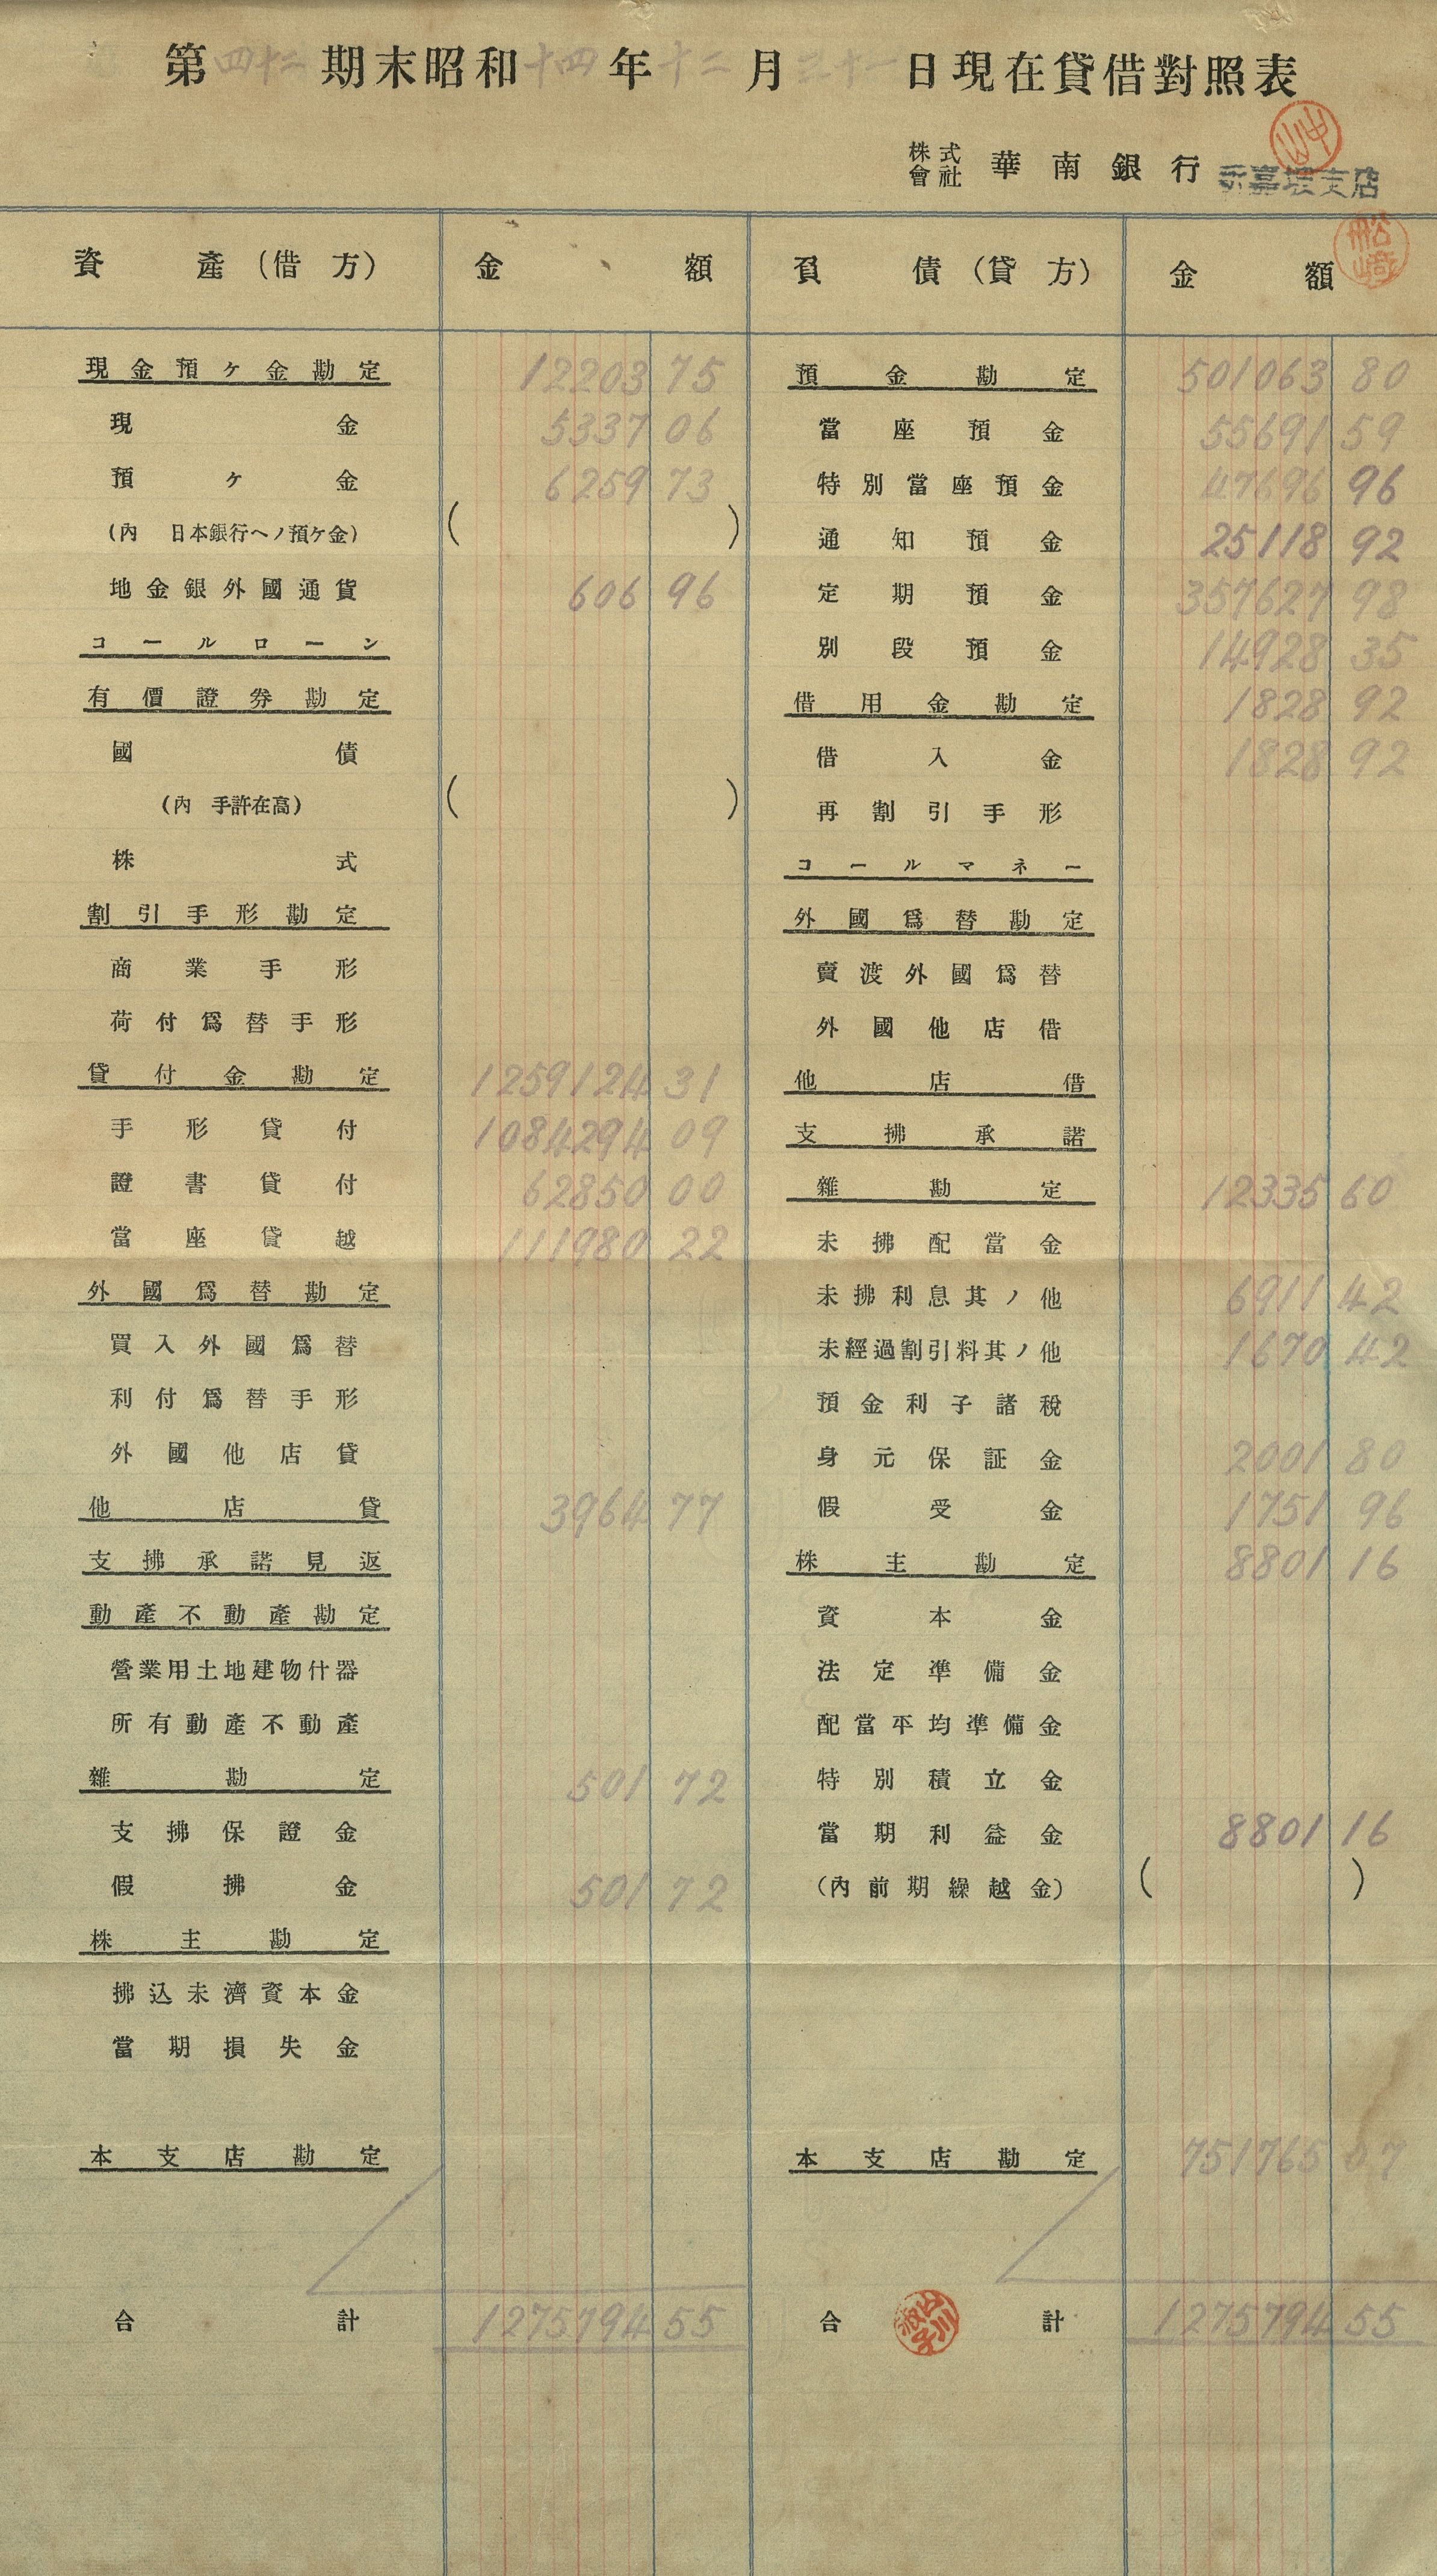 第四十二期末昭和十四年十二月三十一日現在貸借對照表
株式會社 華南銀行 支店
資產(借方) 金額 負債(貸方) 金額
現金預ヶ金勘定 12203 75 預金勘定 501063 80
現金 5337 06 當座預金 55691 59
預ヶ金 6259 73 特別當座預金 47696 96
(內 日本銀行ヘノ預ケ金) ( ) 通知預金 25118 92
地金銀外國通貨 606 96 定期預金 357627 98
コールローン 別段預金 14928 35
有價證券勘定 借用金勘定 1828 92
國債 借入金 1828 92
(內 手許在高) ( ) 再割引手形
株式 コールマネー
割引手形勘定 外國爲替勘定
商業手形 賣渡外國爲替
荷付爲替手形 外國他店借
貸付金勘定 1259124 31 他店借
手形貸付 1084294 09 支拂承諾
證書貸付 62850 00 雜勘定 12335 60
當座貸越 111980 22 未拂配當金
外國爲替勘定 未拂利息其ノ他 6911 42
買入外國爲替 未經過割引料其ノ他 1670 42
利付爲替手形 預金利子諸稅
外國他店貸 身元保証金 2001 80
他店貸 3964 77 假受金 1751 96
支拂承諾見返 株主勘定 8801 16
動產不動產勘定 資本金
營業用土地建物什器 法定準備金
所有動產不動產 配當平均準備金
雜勘定 501 72 特別積立金
支拂保證金 當期利益金 8801 16
假拂金 501 72 (內前期繰越金) ( )
株主勘定
拂込未濟資本金
當期損失金
本支店勘定 本支店勘定 751765 07
合計 1275794 55 合計 1275794 55